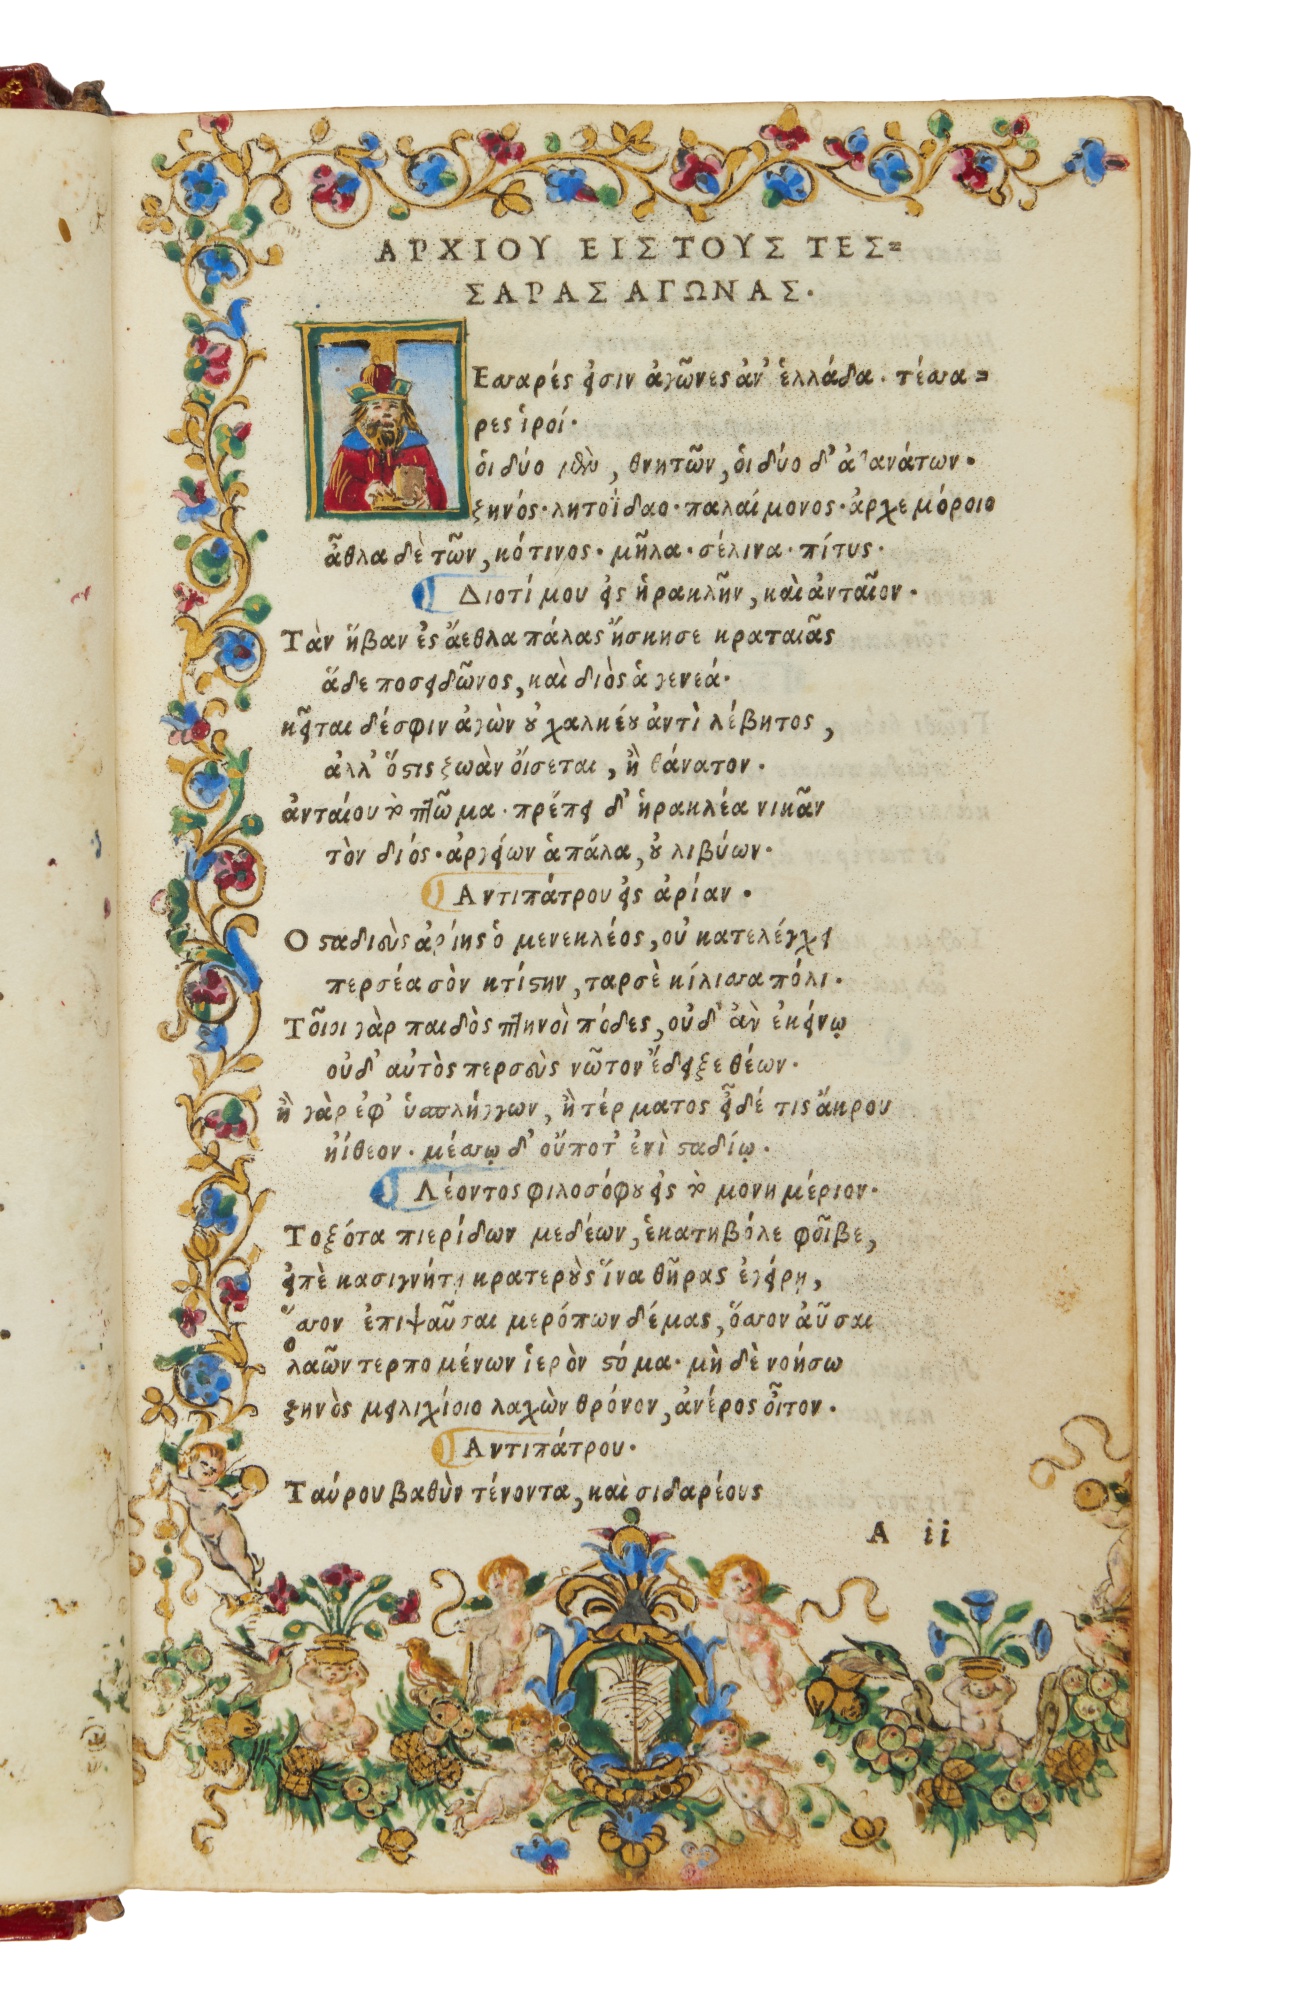 ΑΡΧΙΟΥ ΕΙΣ ΤΟΥΣ ΤΕΣ=
ΣΑΡΑΣ ΑΓΩΝΑΣ.
ΤΕσσαρές εἰσιν ἀγῶνες ἀν' ἑλλάδα· τέσσα=
ρες ἱροί·
ὁι δύο μὲν, θνητῶν, ὁι δύο δ' ἀθανάτων·
ζηνός· λητοΐδαο· παλαίμονος· ἀρχεμόροιο
ἆθλα δὲ τῶν, κότινος· μῆλα· σέλινα· πίτυς·
Διοτίμου εἰς ἡρακλῆν, καὶ ἀνταῖον·
Τὰν ἥβαν ἐς ἄεθλα πάλας ἤσκησε κραταιᾶς
ἅδε ποσειδῶνος, καὶ διὸς ἁ γενεά·
κεῖται δέ σφιν ἀγὼν οὐ χαλκέου ἀντὶ λέβητος,
ἀλλ' ὅστις ζωὰν ὄισεται, ἢ θάνατον·
ἀνταίου τὸ πτῶμα· πρέπει δ' ἡρακλέα νικᾶν
τὸν διός· ἀργείων ἁ πάλα, οὐ λιβύων·
Αντιπάτρου εἰς ἀρίαν·
Ο σταδιεὺς ἀρίης ὁ μενεκλέος, οὐ κατελέγχει
περσέα σὸν κτίστην, ταρσὲ κίλισσα πόλι·
Τοῖοι γὰρ παιδὸς πτηνοὶ πόδες, οὐδ' ἂν ἐκείνῳ
οὐδ' αὐτὸς περσεὺς νῶτον ἔδειξε θέων·
ἢ γὰρ ἐφ' ὑσπλήγγων, ἢ τέρματος εἶδέ τις ἄκρου
ἠίθεον· μέσσῳ δ' οὔποτ' ἐνὶ σταδίῳ·
Λέοντος φιλοσόφου εἰς τὸ μονημέριον·
Τοξότα πιερίδων μεδέων, ἑκατηβόλε φοῖβε,
εἰπὲ κασιγνήτῃ κρατεροὺς ἵνα θῆρας ἐγείρῃ,
ὅσσον ἐπιψαῦσαι μερόπων δέμας, ὅσσον ἀῦσαι
λαῶν τερπομένων ἱερὸν στόμα· μὴ δὲ νοήσω
ζηνὸς μειλιχίοιο λαχὼν θρόνον, ἀνέρος οἶτον·
Αντιπάτρου·
Ταύρου βαθὺν τένοντα, καὶ σιδαρέους
A ii